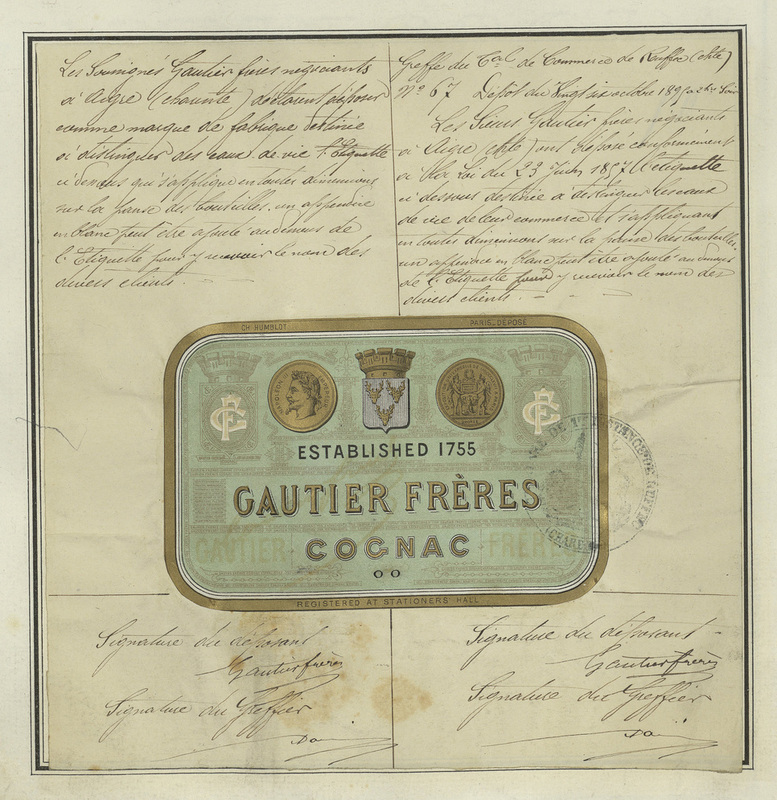 Les Soussignés Gautier frères négociants
à Aigre (charente) déclarent déposer
comme marque de fabrique destinée
à distinguer des eaux de vie l'Etiquette
ci dessus qui s'applique en toutes dimensions
sur la panse des bouteilles. un appendice
en blanc peut être ajouté au dessus de
l'Etiquette pour y recevoir le nom des
divers clients.
Greffe du Cal de Commerce de Ruffec (chte)
No 67 Dépôt du Vingt six octobre 189
Les Sieurs Gautier frères négociants
à Aigre (chte) ont déposé conformément
à la Loi du 23 Juin 1857 l'etiquette
ci dessous destinée à distinguer les eaux
de vie de leur commerce et s'appliquant
en toutes dimensions sur la panse des bouteilles.
un appendice en blanc peut être ajouté au dessus
de l'Etiquette pour y recevoir le nom des
divers clients.
CH. HUMBLOT PARIS. DÉPOSÉ
NAPOLEON EMPEREUR
GF GF
ESTABLISHED 1755
GAUTIER FRÈRES
GAUTIER COGNAC FRÈRES
REGISTERED AT STATIONERS' HALL
Signature du déposant
Gautier frères
Signature du Greffier
Signature du déposant
Gautier frères
Signature du Greffier